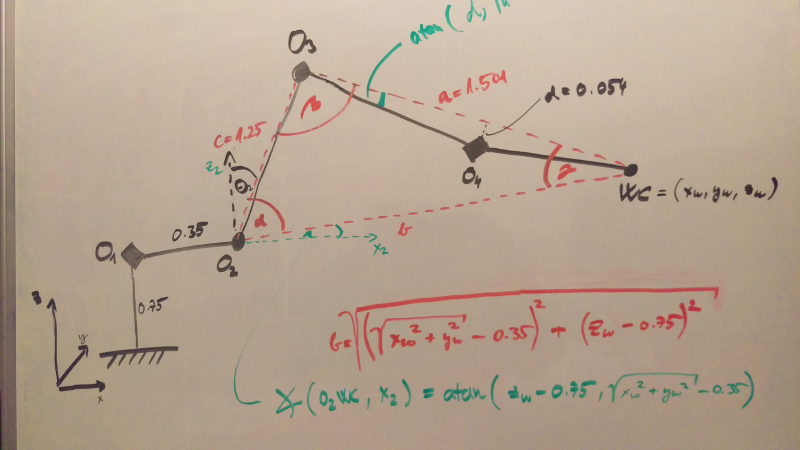 O₃
atan(d,
a=1.501
d=0.054
β
C=1.25
z₂
Θ₂
O₄
γ
WC = (xw, yw, zw)
α
0.35
O₁
b
x₂
O₂
0.75
z
y
x
b=√((√(xw²+yw²) - 0.35)² + (zw - 0.75)²)
∡(O₂WC, x₂) = atan(zw - 0.75, √(xw²+yw²) - 0.35)